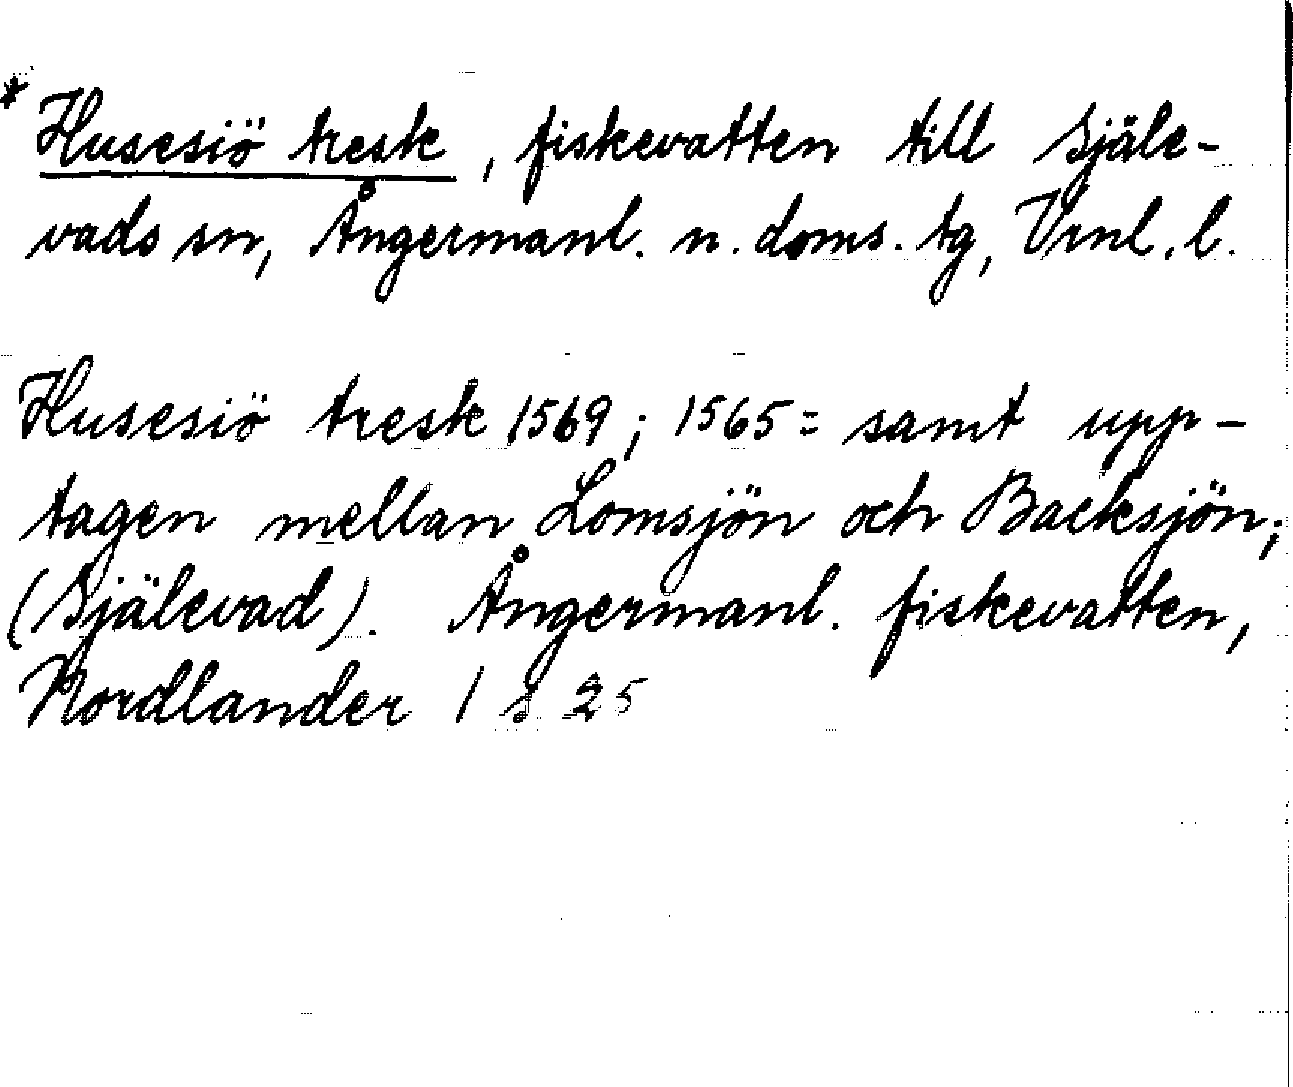 * Husesiö tresk, fiskevatten till Själe-
vads sn, Ångermanl. n. doms. tg, Vrnl. l.
Husesiö tresk 1569; 1565 = samt upp-
tagen mellan Lomsjön och Backsjön;
(Själevad). Ångermanl. fiskevatten,
Nordlander / s 25